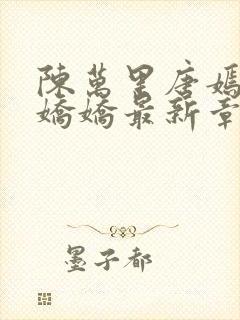 陳萬里唐嫣
嬌嬌最新章
墨子都